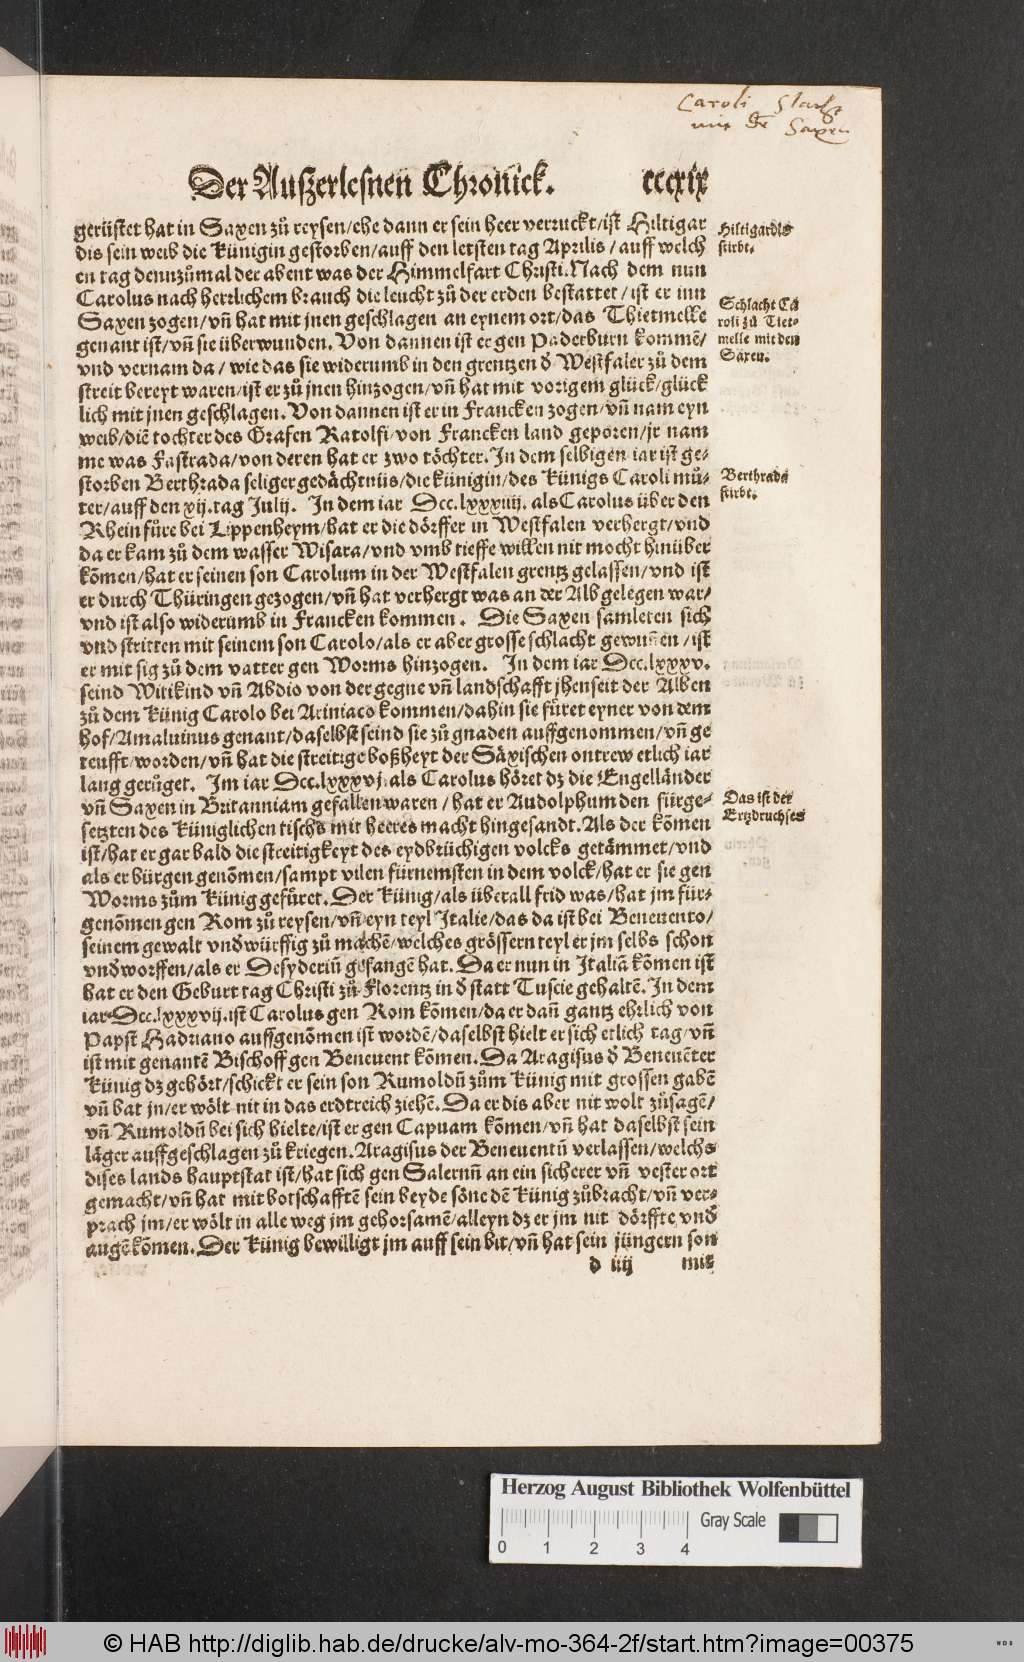 Caroli
mit Saxen
Der Außerlesnen Chronick. cccxix
gerüstet hat in Saxen zů reysen/ehe dann er sein heer verruckt/ist Hiltigar
dis sein weib die Künigin gestorben/auff den letsten tag Aprilis/auff welch
en tag dennzůmal der abent was der Himmelfart Christi. Nach dem nun
Carolus nach herrlichem brauch die leucht zů der erden bestattet/ist er inn
Saxen zogen/vñ hat mit jnen geschlagen an eynem ort/das Thietmelle
genant ist/vñ sie überwunden. Von dannen ist er gen Paderburn kommē/
vnd vernam da/wie das sie widerumb in den grentzen ð Westfaler zů dem
streit bereyt waren/ist er zů jnen hinzogen/vñ hat mit vorigem glück/glück
lich mit jnen geschlagen. Von dannen ist er in Francken zogen/vñ nam eyn
weib/diē tochter des Grafen Ratolfi/von Francken land geporen/jr nam
me was Fastrada/von deren hat er zwo töchter. In dem selbigen iar ist ge-
storben Berthrada seliger gedächtnüs/die künigin/des Künigs Caroli můt-
ter/auff den xij. tag Julij. In dem iar Dcc.lxxxiiij. als Carolus über den
Rhein fůre bei Lippenheym/hat er die dörffer in Westfalen verhergt/vnd
da er kam zů dem wasser Wisara/vnd vmb tieffe willen nit mocht hinüber
kōmen/hat er seinen son Carolum in der Westfalen grentz gelassen/vnd ist
er durch Thüringen gezogen/vñ hat verhergt was an der Alb gelegen war/
vnd ist also widerumb in Francken kommen. Die Saxen samleten sich
vnd stritten mit seinem son Carolo/als er aber grosse schlacht gewunnen/ist
er mit sig zů dem vatter gen Worms hinzogen. In dem iar Dcc.lxxxv.
seind Witikind vñ Abdio von der gegne vñ landschafft jhenseit der Alben
zů dem Künig Carolo bei Attiniaco kommen/dahin sie fůret eyner von dem
hof/Amaluinus genant/daselbst seind sie zů gnaden auffgenommen/vñ ge
teufft worden/vñ hat die streitige boßheyt der Säxischen ontrew etlich iar
lang gerůget. Im iar Dcc.lxxxvj. als Carolus höret dz die Engelländer
vñ Saxen in Britanniam gefallen waren/hat er Audolphum den fürge-
setzten des Küniglichen tischs mit heeres macht hingesandt. Als der kōmen
ist/hat er gar bald die streitigkeyt des eydbrüchigen volcks getämmet/vnd
als er bürgen genōmen/sampt vilen fürnemsten in dem volck/hat er sie gen
Worms zům Künig gefůret. Der Künig/als überall frid was/hat jm für-
genōmen gen Rom zů reysen/vñ eyn teyl Italie/das da ist bei Beneuento/
seinem gewalt vnðwürffig zů machē/welches grössern teyl er jm selbs schon
vnðworffen/als er Desyderiū gefangē hat. Da er nun in Italiā kōmen ist
hat er den Geburt tag Christi zů Florentz in ð statt Tuscie gehaltē. In dem
iar Dcc.lxxxvij. ist Carolus gen Rom kōmen/da er dañ gantz ehrlich von
Papst Hadriano auffgenōmen ist wordē/daselbst hielt er sich etlich tag/vñ
ist mit genantē Bischoff gen Beneuent kōmen. Da Aragisus ð Beneuēter
Künig dz gehört/schickt er sein son Rumoldū zům Künig mit grossen gabē
vñ bat jn/er wölt nit in das erdtreich ziehē. Da er dis aber nit wolt zůsagē/
vñ Rumoldū bei sich hielte/ist er gen Capuam kōmen/vñ hat daselbst sein
läger auffgeschlagen zů kriegen. Aragisus der Beneuentū verlassen/welchs
dises lands hauptstat ist/hat sich gen Salernū an ein sicherer vñ vester ort
gemacht/vñ hat mit botschafftē sein beyde söne dē Künig zůbracht/vñ ver-
sprach jm/er wölt in alle weg jm gehorsamē/alleyn dz er jm nit dörffte vndð
augē kōmen. Der Künig bewilligt jm auff sein bit/vñ hat sein jüngern son
d iiij mit
Hiltigardis
stirbt.
Schlacht Ca
roli zů Tiet-
melle mit den
Saxen.
Berthrada
stirbt.
Das ist der
Ertzdruchses
Herzog August Bibliothek Wolfenbüttel
Gray Scale
0 1 2 3 4
© HAB http://diglib.hab.de/drucke/alv-mo-364-2f/start.htm?image=00375